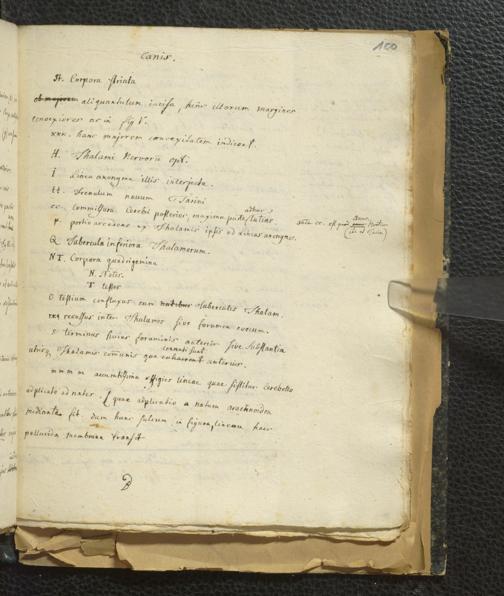 100
Canis.
H. Corpora striata
aliquantulum incisa, hinc illorum margines
convexiores ac in fig I.
xxx. hanc majorem convexitatem indicant.
H. Thalami Nervorum opt:
I Linea anonyma illis interjecta.
tt. Frenulum novum Tarini
cc. commissura Cerebri posterior, maxima parte latius
r. portio accedens ex Thalamis ipsis ad lineas anonymas.
Q Tubercula inferiora Thalamorum.
NT. Corpora quadrigemina
N. Nates.
T testes
O testium confluxus cum natibus tuberculis Thalam.
recessus inter Thalamos sive foramen coecum.
s terminus hujus foraminis anterior sive substantia
utrisq Thalamis com̄unis qua cohaerent anterius.
connati sunt
m m m m accuratissima effigies lineae quae sistitur cerebello
adplicato ad nates. quae adplicatio a natum arachnoidea
mediante fit, dum hunc sulcum, in figura, lineam haec
pellucida membrana transit